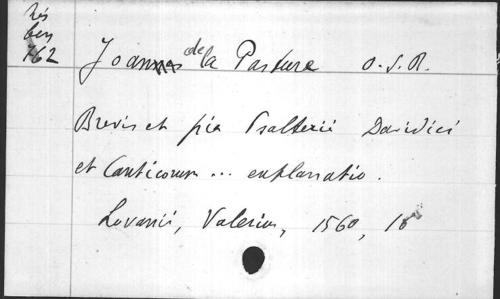 Rés
ben
762
Joannes de la Pasture O.S.B.
Brevis et pia Psalterii Davidici
et Canticorum ... explanatio.
Lovanii, Valerius, 1560, 16°